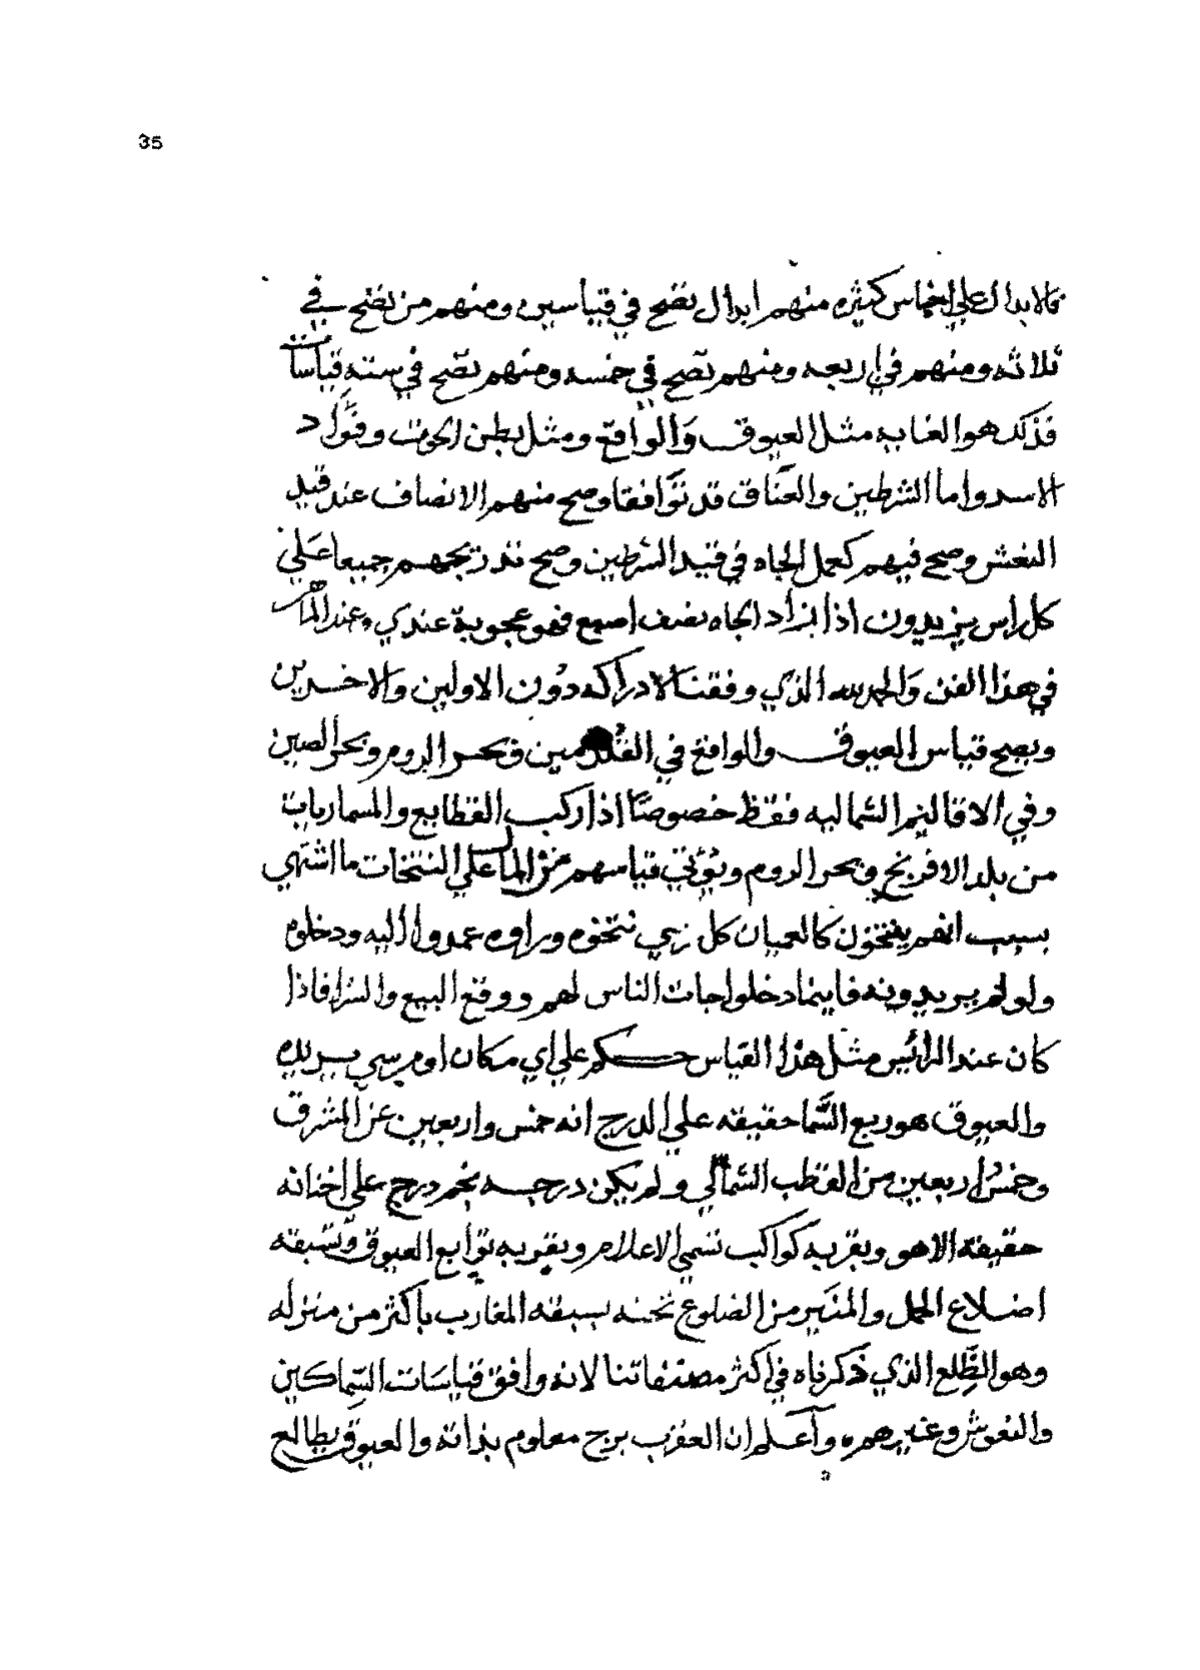 35
كالابدال علي اخماس كثيره منهم ابدال تصح في قياسين ومنهم من تصح في
ثلاثه ومنهم في اربعه ومنهم تصح في خمسه ومنهم تصح في سته قياسات
فذلك هو الغايه مثل العيوق والواقع ومثل بطن الحوت وفواد
الاسد واما الشرطين والعناق قد توافقا وصح منهم الانصاف عند قيد
النعش وصح فيهم كعمل الجاه في قيد الشرطين وصح تدريجهم جميعا علي
كل راس يزيدون اذا زاد الجاه نصف اصبع فهو عجوبة عندي وعند
في هذا الفن والحمد لله الذي وفقنا لادراكه دون الاولين والاخرين
ويصح قياس العيوق والواقع في وبحر الروم وبحر الصين
وفي الاقاليم الشماليه فقط خصوصا اذا ركب القطايع والمسماريات
من بلد الافرنج وبحر الروم قياسهم علي النتخات ما اشتهي
بسبب انهم ينتخون كالعميان كل نتخوه وراوه عمدوا اليه ودخلوه
ولو لم يريدونه فاينما دخلوا جات الناس لهم ووقع البيع والشرا فاذا
كان عند الرائس مثل هذا القياس حكم علي اي مكان او مرسي يريده
والعيوق هو ربع السما حقيقه علي الدرج انه خمس واربعين عن المشرق
وخمس اربعين من القطب الشمالي ولم يكن درجه نجم درج علي اخنانه
حقيقة الا هو وبقربه كواكب تسمي الاعلام وبقربه توابع العيوق وتسبقه
اضلاع الحمل والمنير من الضلوع تحته يسبقه المغارب باكثر من منزله
وهو الظلع الذي ذكرناه في اكثر مصنفاتنا لانه وافق قياسات السماكين
والنعوش وغيرهم واعلم ان العقرب برج معلوم بذاته والعيوق يطالع